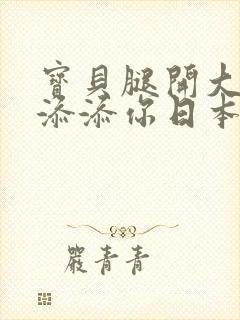 寶貝腿開大
添添你日本
嚴青青